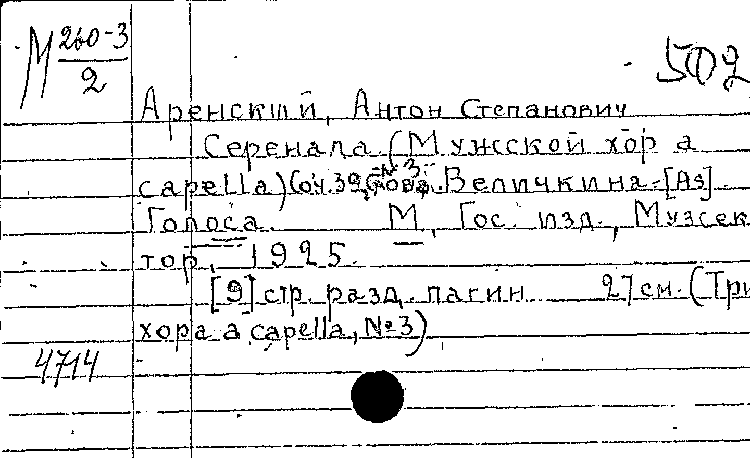 М 260-3
2
502
Аренский, Антон Степанович
Серенада. (Мужской хор a
capella) Соч. 39, №3. Слова Величкина. [As].
Голоса. М., Гос. изд., Музсек
тор, 1925.
[9] стр. разд. пагин 27 см. (Три
хора a capella, №3)
4714